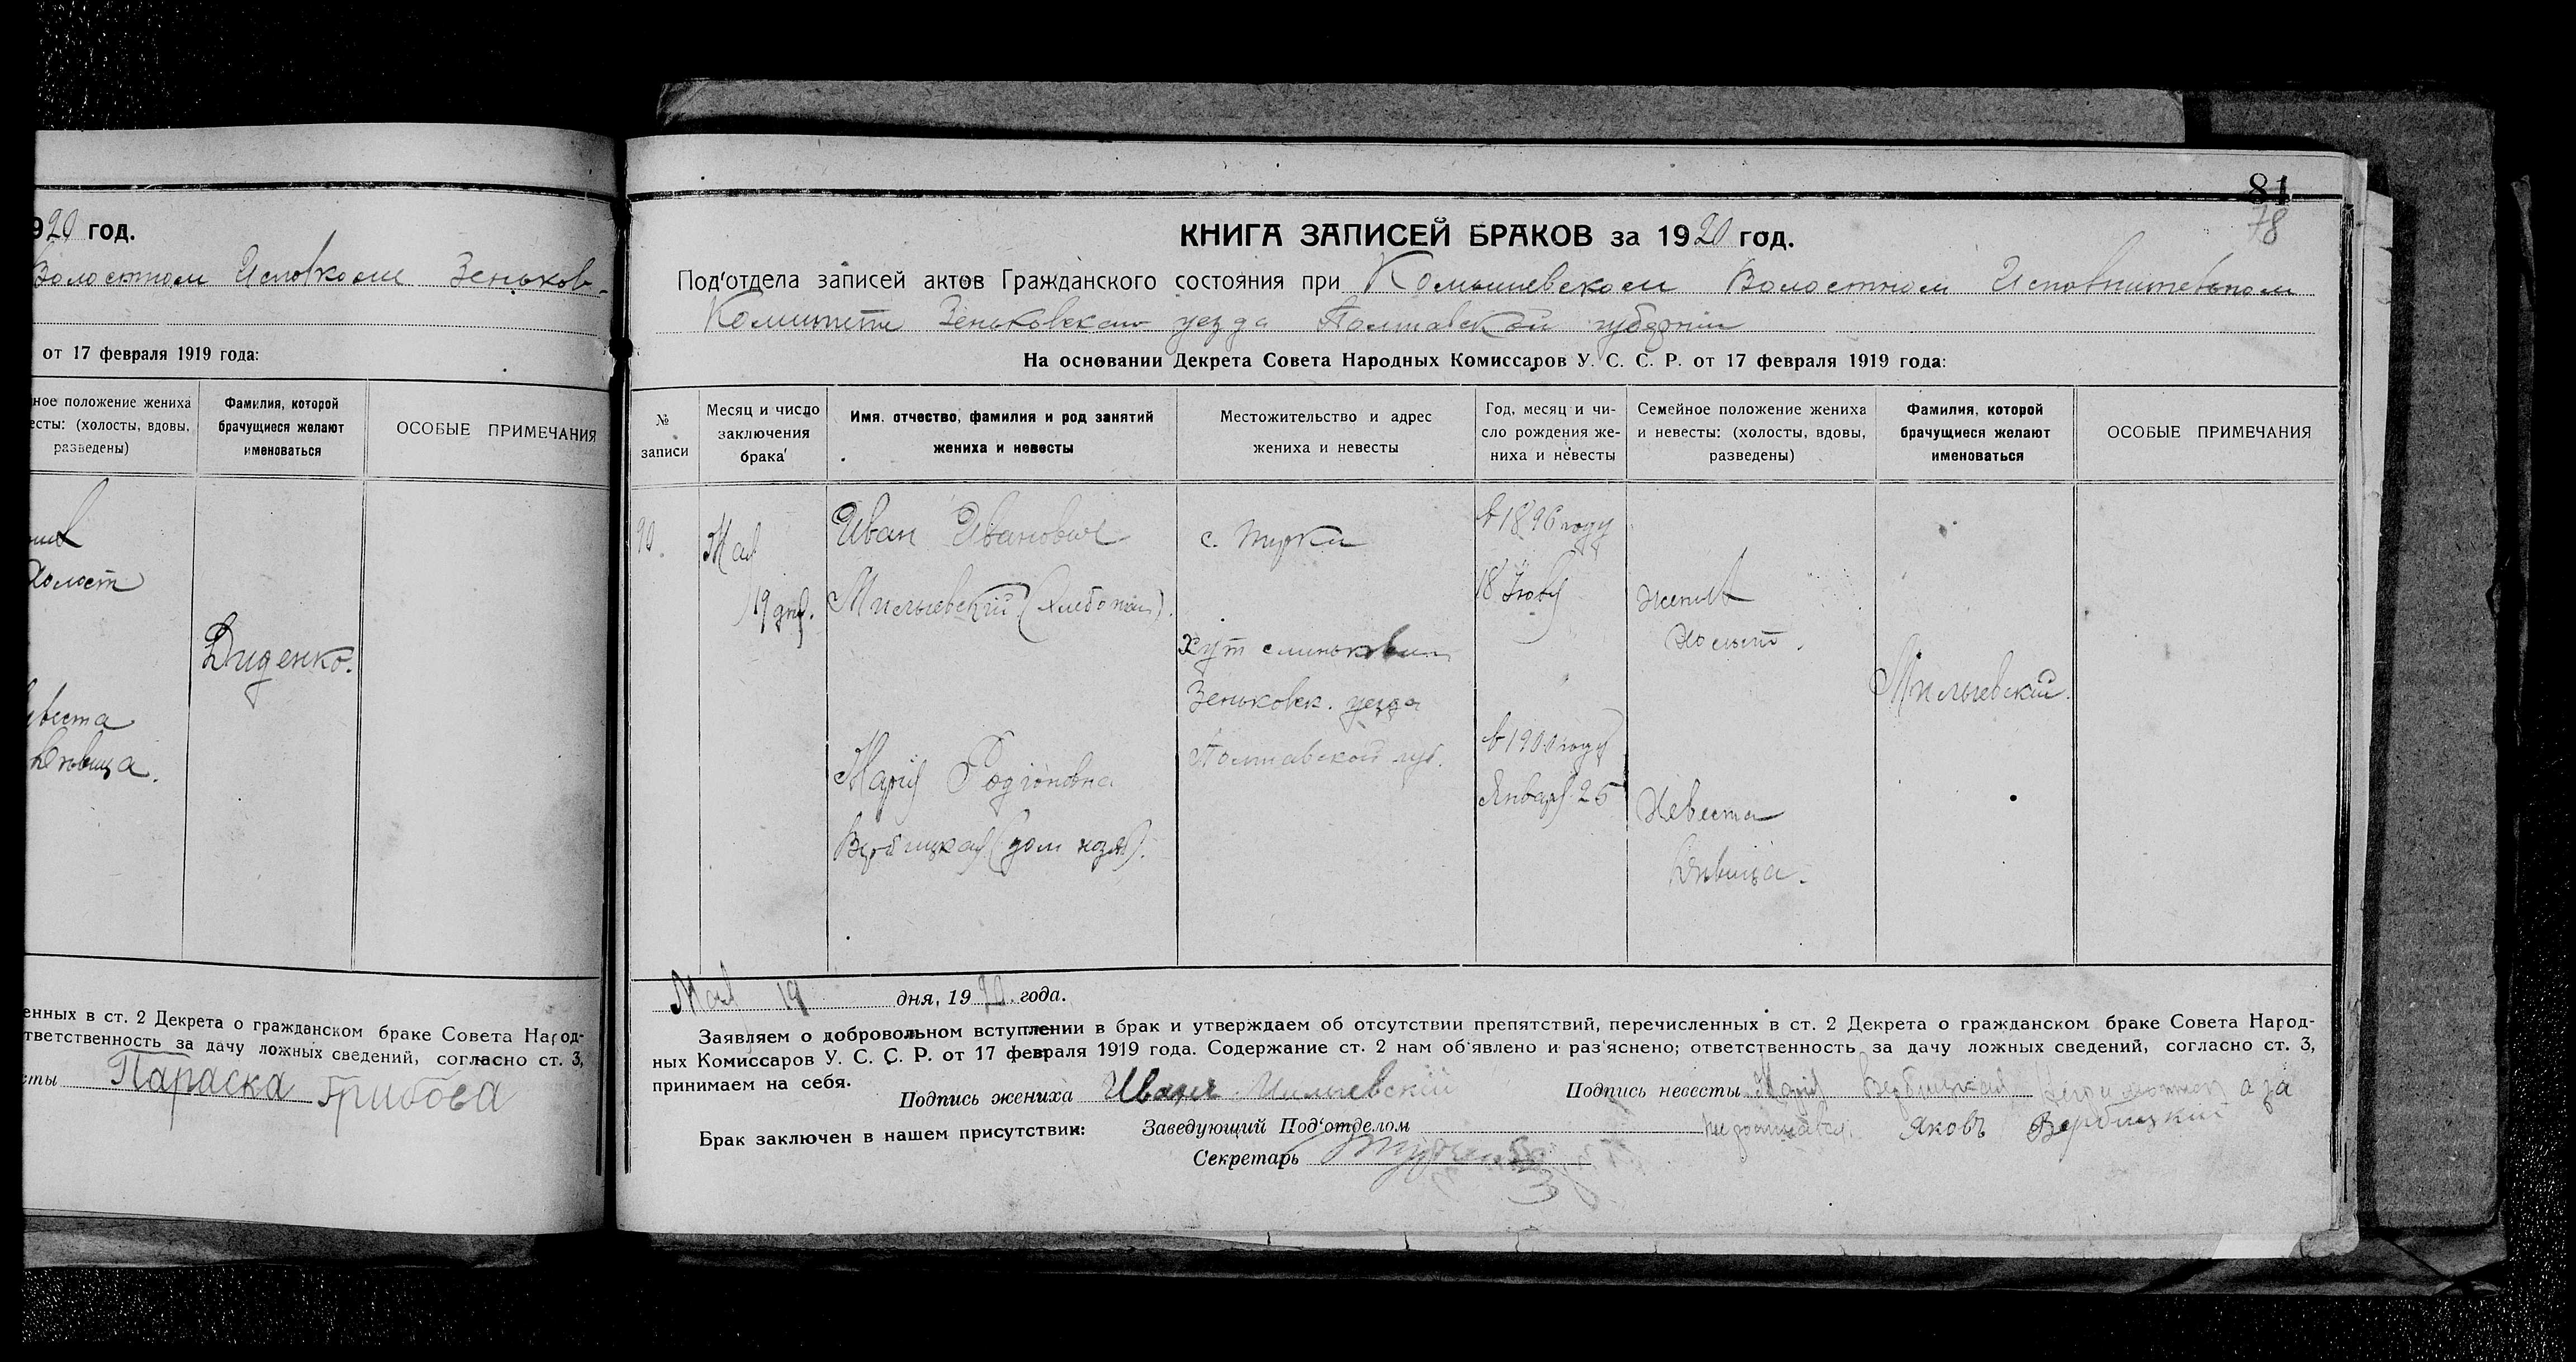 920 год.
Волостном Исповкоме Зеньков-
от 17 февраля 1919 года:
ное положение жениха
есты: (холосты, вдовы,
разведены)
Фамилия, которой
брачущиеся желают
именоваться
ОСОБЫЕ ПРИМЕЧАНИЯ
Холост
Диденко.
евеста
Девица.
енных в ст. 2 Декрета о гражданском браке Совета Народ-
тветственность за дачу ложных сведений, согласно ст. 3,
сты Параска Грибова
81
78
КНИГА ЗАПИСЕЙ БРАКОВ за 1920 год.
Под'отдела записей актов Гражданского состояния при Комышевском Волостном Исповнительном
Комитете Зеньковскаго уезда Полтавской губернии
На основании Декрета Совета Народных Комиссаров У. С. С. Р. от 17 февраля 1919 года:
№
записи
Месяц и число
заключения
брака
Имя, отчество, фамилия и род занятий
жениха и невесты
Местожительство и адрес
жениха и невесты
Год, месяц и чи-
сло рождения же-
ниха и невесты
Семейное положение жениха
и невесты: (холосты, вдовы,
разведены)
Фамилия, которой
брачущиеся желают
именоваться
ОСОБЫЕ ПРИМЕЧАНИЯ
90.
Мая
19 дня.
Иван Иванович
Милиевский (хлебопаш).
Мария Родионовна
Вербицкая (дом хозяй).
с.
Хут
Зеньковск. уезда
Полтавской губ.
в 1896 году
18
в 1900 году
Января 25
жених
холост.
Невеста
Девица.
Милиевский.
Мая 19 дня, 1920 года.
Заявляем о добровольном вступлении в брак и утверждаем об отсутствии препятствий, перечисленных в ст. 2 Декрета о гражданском браке Совета Народ-
ных Комиссаров У. С. С. Р. от 17 февраля 1919 года. Содержание ст. 2 нам об'явлено и раз'яснено; ответственность за дачу ложных сведений, согласно ст. 3,
принимаем на себя.
Подпись жениха Иван Милиевскій
Подпись невесты Марія Вербицкая а за
Брак заключен в нашем присутствии: Заведующий Под'отделом
Яковъ Вербицкій
Секретарь